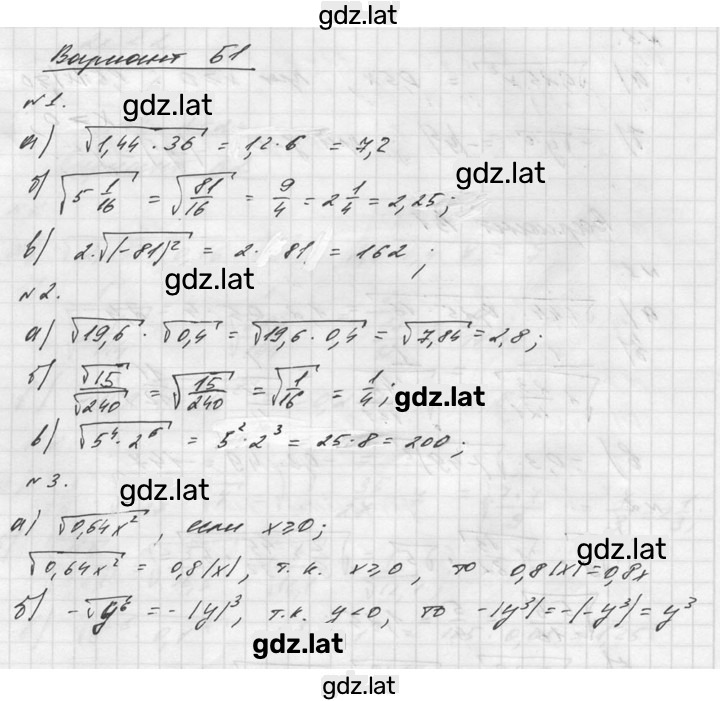 gdz.lat
Вариант Б1
№1.
gdz.lat
а) √(1,44 · 36) = 1,2 · 6 = 7,2
gdz.lat
б) √(5 1/16) = √(81/16) = 9/4 = 2 1/4 = 2,25;
в) 2 · √(-81)² = 2 · 81 = 162;
gdz.lat
№2.
а) √19,6 · √0,4 = √(19,6 · 0,4) = √7,84 = 2,8;
б) √15/√240 = √(15/240) = √(1/16) = 1/4;
gdz.lat
в) √(5⁴ · 2⁶) = 5² · 2³ = 25 · 8 = 200;
№3.
gdz.lat
а) √(0,64x²), если x ≥ 0;
gdz.lat
√(0,64x²) = 0,8|x|, т.к. x ≥ 0, то 0,8|x| = 0,8x
б) -√y⁶ = -|y|³, т.к. y < 0, то -|y³| = -(-y³) = y³
gdz.lat
gdz.lat